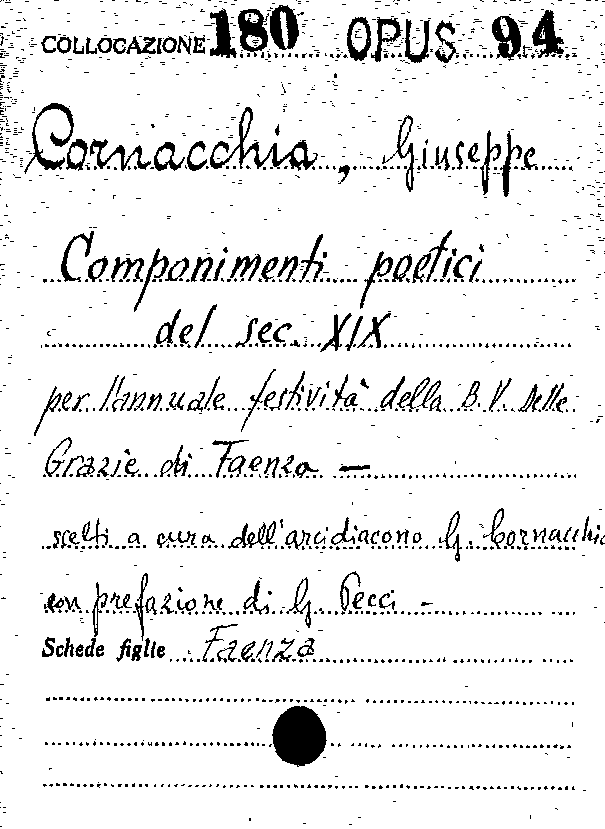 COLLOCAZIONE 180 OPUS 94
Cornacchia, Giuseppe
Componimenti poetici
del sec. XIX
per l'annuale festività della B.V. delle
Grazie di Faenza —
scelti a cura dell'arcidiacono G. Cornacchia
con prefazione di G. Pecci -
Schede figlie Faenza